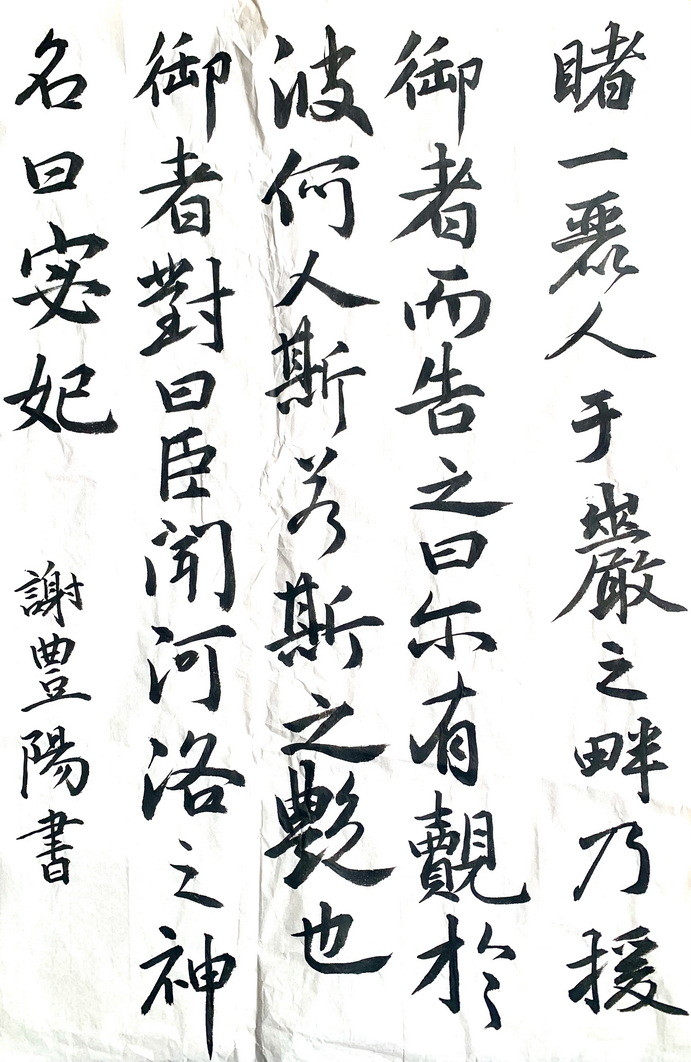 睹一麗人于巖之畔乃援
御者而告之曰尔有覿於
彼何人斯若斯之艷也
御者對曰臣聞河洛之神
名曰宓妃
謝豊陽書